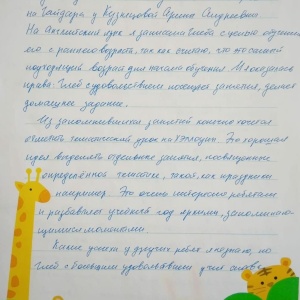 по Гайдара у Кузнецовой Арины Андреевны
На английский язык я записала Глеба с целью обучения
его с раннего возраста, так как считаю, что это самый
подходящий возраст для начала обучения. И я оказалась
права. Глеб с удовольствием посещает занятия, делает
домашнее задание.
Из запомнившихся занятий конечно
тематический урок на Хэллоуин. Это хорошая
идея выделять отдельные занятия, посвященные
определённой тематике, такой, как праздники
например. Это очень интересно ребятам
и разбавляет учебный год яркими, запоминаю-
щимися моментами.
Какие успехи у других ребят я не знаю, но
Глеб с большим удовольствием учит